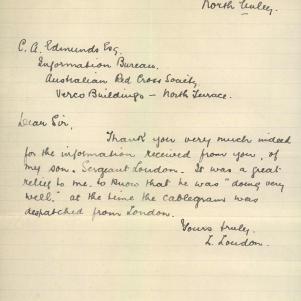 North Unley.
C. A. Edmunds Esq.
Information Bureau.
Australian Red Cross Society.
Verco Buildings – North Terrace.
Dear Sir,
Thank you very much indeed
for the information received from you, of
my son, Sergeant Loudon. It was a great
relief to me to know that he was "doing very
well" at the time the cablegram was
despatched from London.
Yours truly,
L. Loudon.